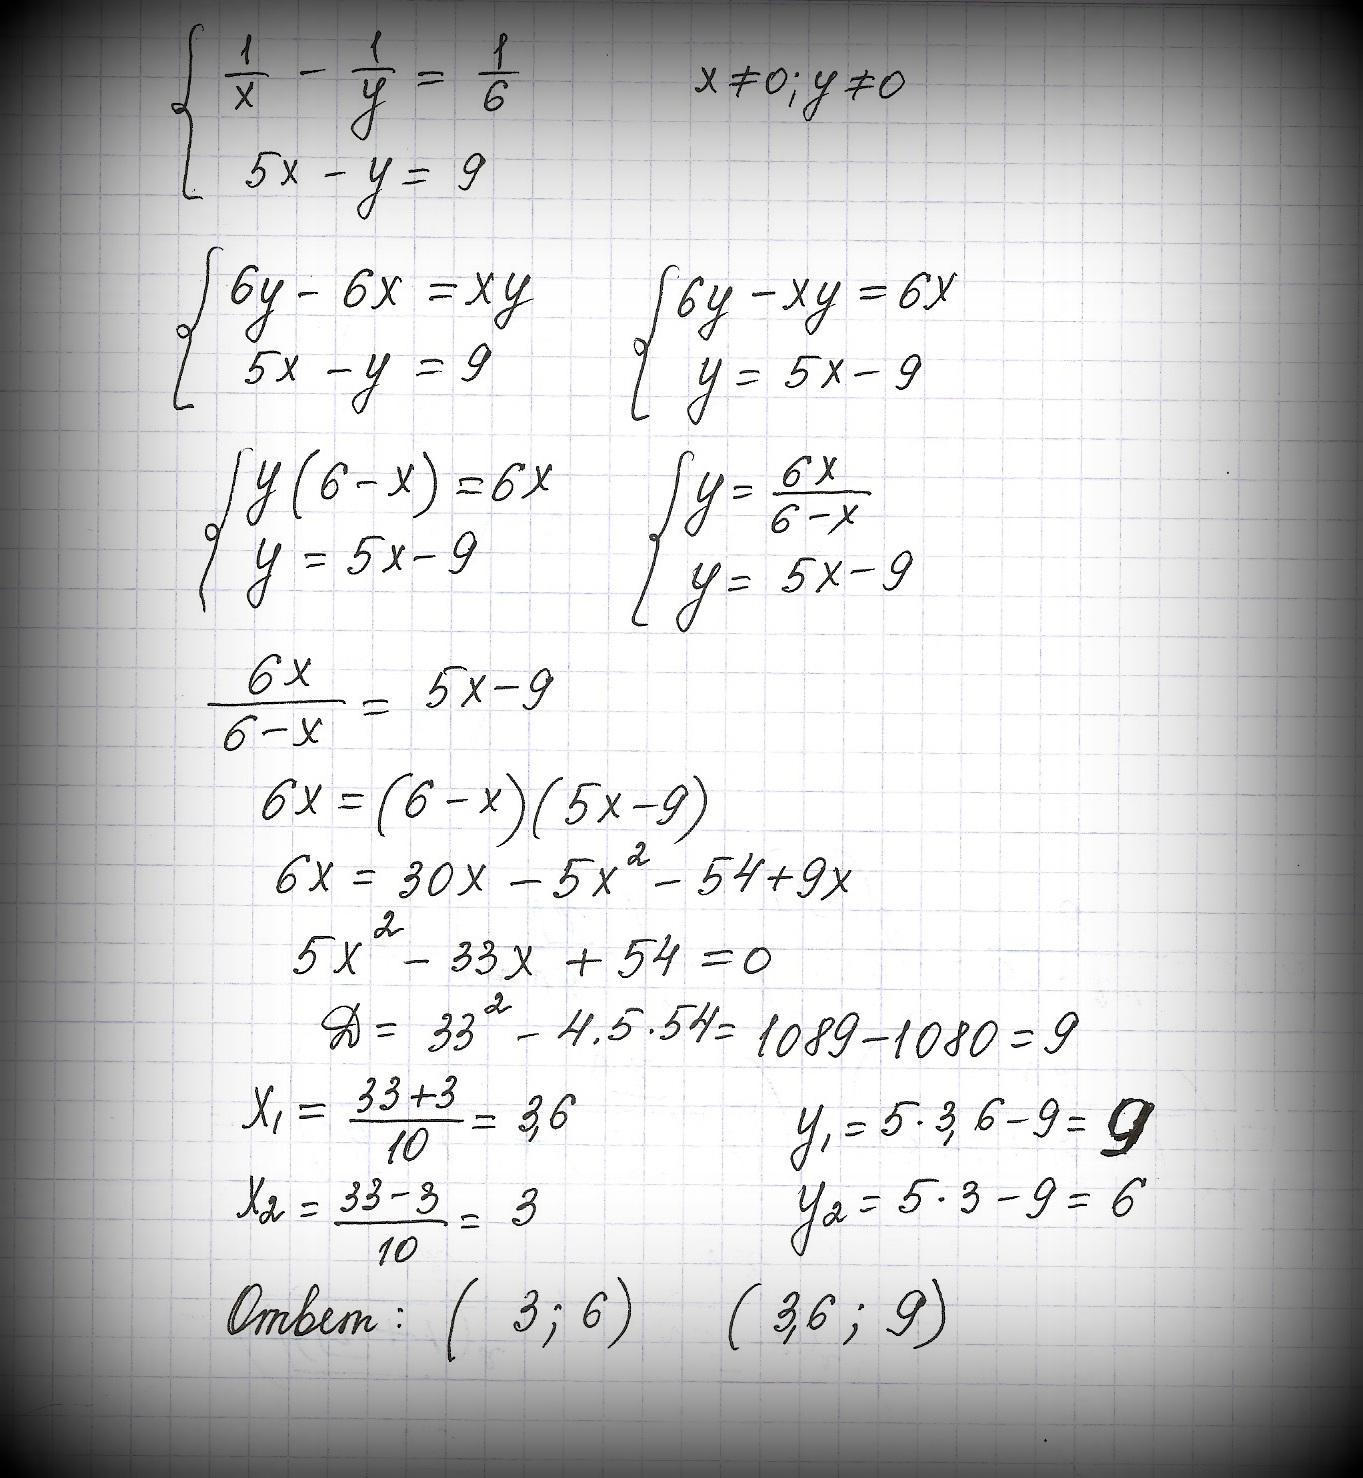 1/x - 1/y = 1/6 x ≠ 0; y ≠ 0
5x - y = 9
6y - 6x = xy 6y - xy = 6x
5x - y = 9 y = 5x - 9
y(6 - x) = 6x y = 6x/(6 - x)
y = 5x - 9 y = 5x - 9
6x/(6 - x) = 5x - 9
6x = (6 - x)(5x - 9)
6x = 30x - 5x² - 54 + 9x
5x² - 33x + 54 = 0
Д = 33² - 4.5·54 = 1089 - 1080 = 9
x₁ = (33 + 3)/10 = 3,6 y₁ = 5·3,6 - 9 = 9
x₂ = (33 - 3)/10 = 3 y₂ = 5·3 - 9 = 6
Ответ: ( 3; 6) ( 3,6; 9)